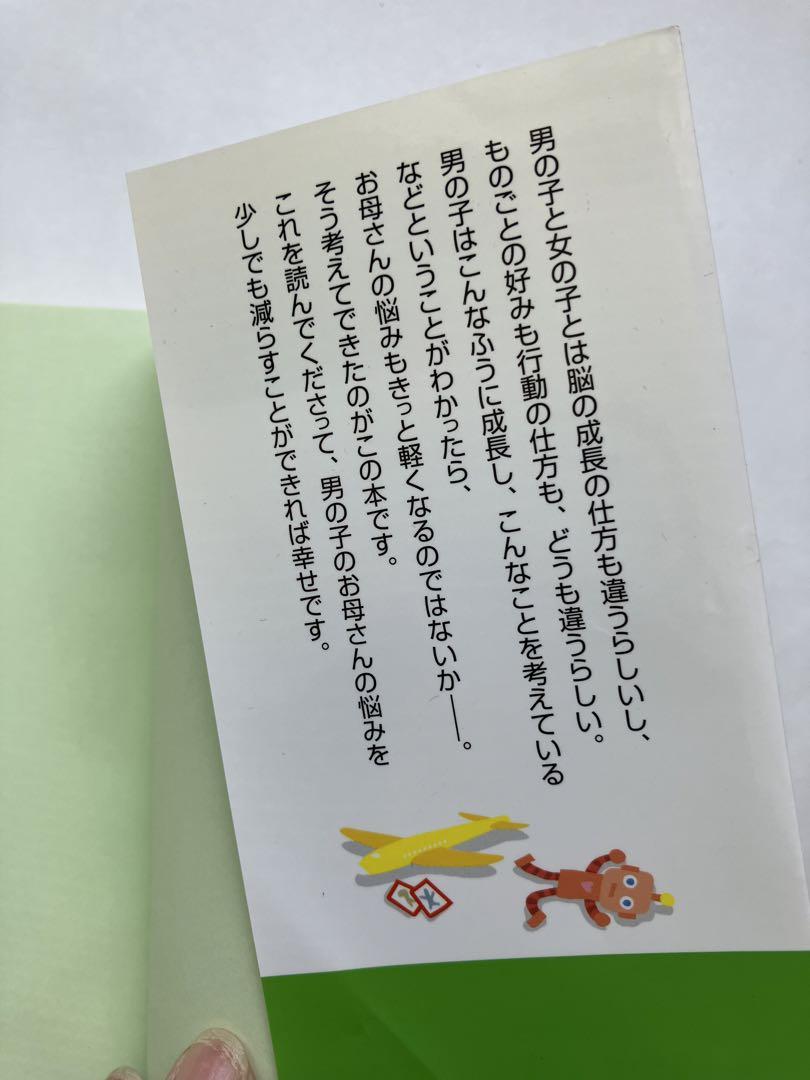 男の子と女の子とは脳の成長の仕方も違うらしいし、
ものごとの好みも行動の仕方も、どうも違うらしい。
男の子はこんなふうに成長し、こんなことを考えている
などということがわかったら、
お母さんの悩みもきっと軽くなるのではないか――。
そう考えてできたのがこの本です。
これを読んでくださって、男の子のお母さんの悩みを
少しでも減らすことができれば幸せです。